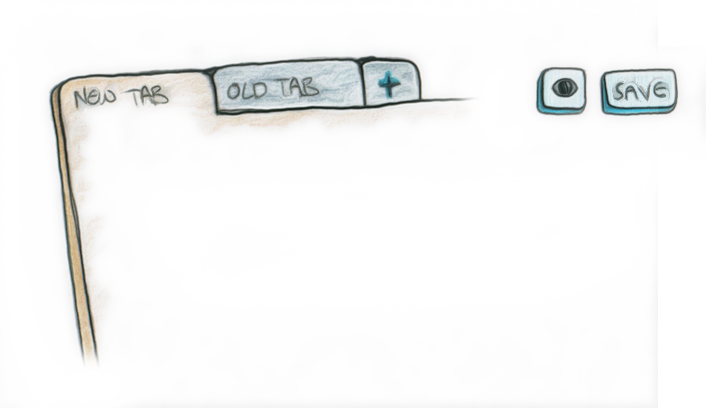 NEW TAB
OLD TAB
+
SAVE